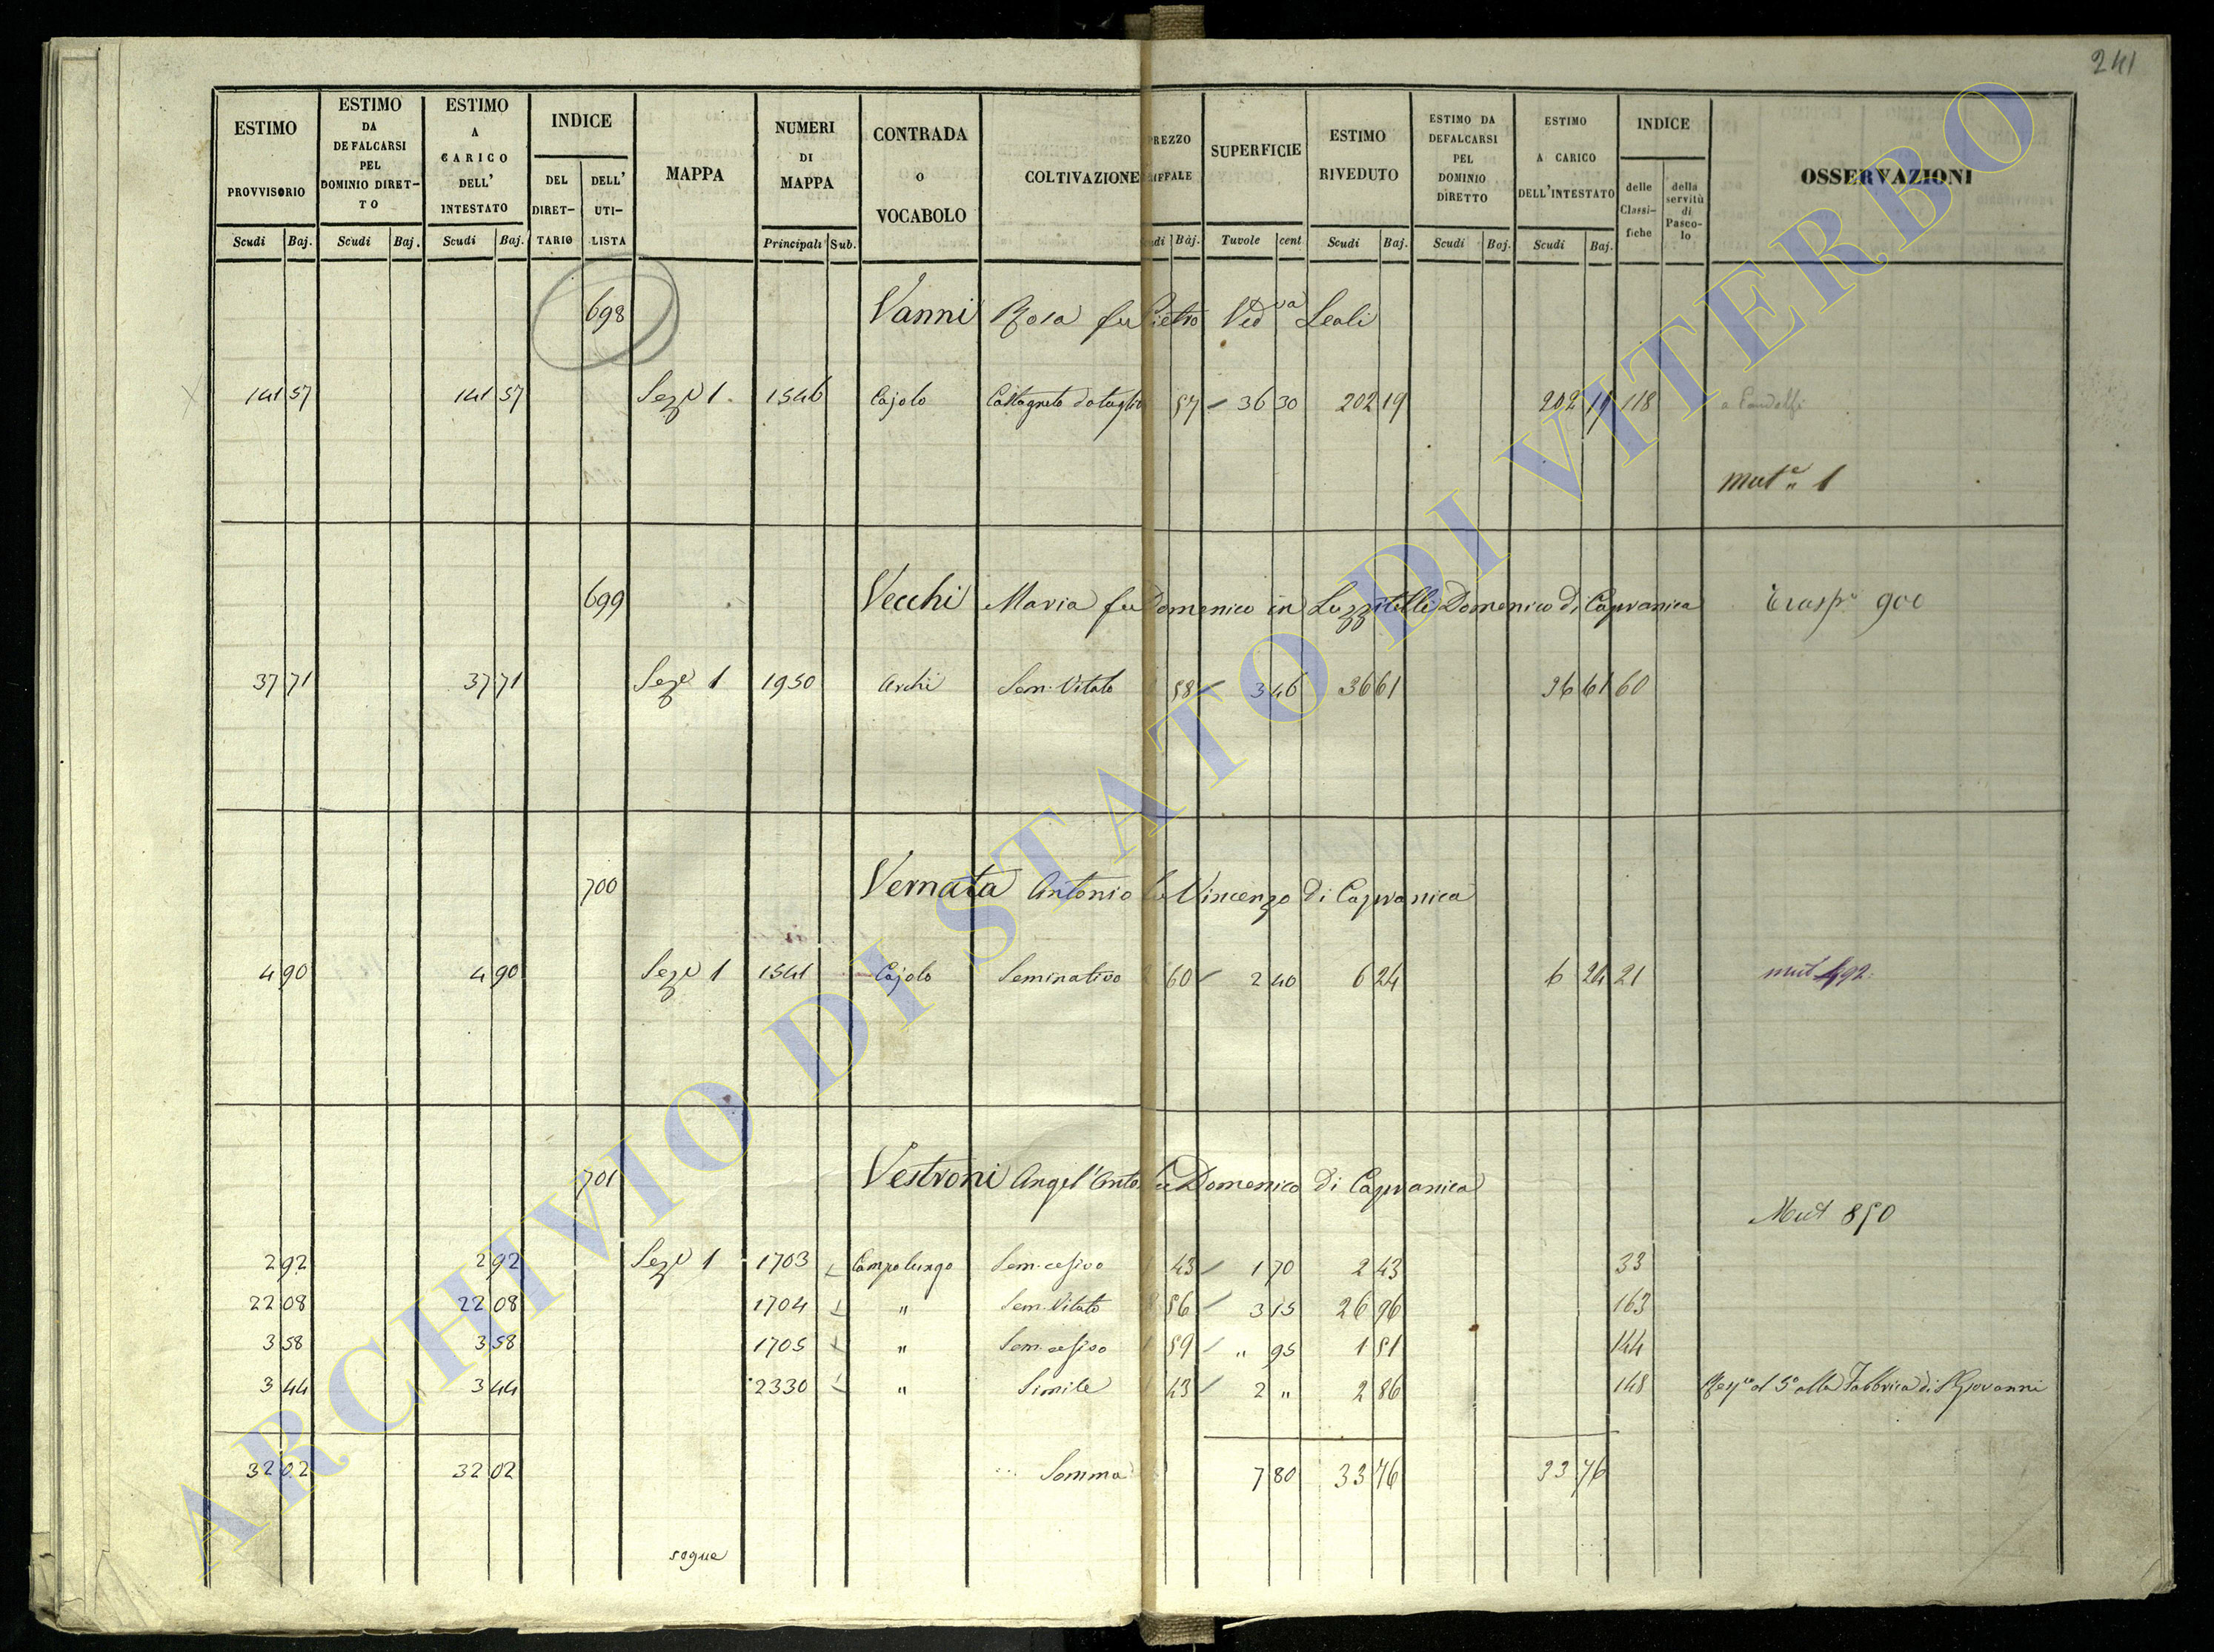 241
ESTIMO PROVVISORIO Scudi Baj.
ESTIMO DA DEFALCARSI PEL DOMINIO DIRET-TO Scudi Baj.
ESTIMO A CARICO DELL' INTESTATO Scudi Baj.
INDICE DEL DIRET-TARIO DELL' UTI-LISTA
MAPPA
NUMERI DI MAPPA Principali Sub.
CONTRADA O VOCABOLO
COLTIVAZIONE
REZZO IFFALE Baj.
SUPERFICIE Tavole cent
ESTIMO RIVEDUTO Scudi Baj.
ESTIMO DA DEFALCARSI PEL DOMINIO DIRETTO Scudi Boj.
ESTIMO A CARICO DELL'INTESTATO Scudi Baj.
INDICE delle Classi-fiche della servitù di Pasco-lo
OSSERVAZIONI
698 Vanni Rosa fu Pietro Ved va Leali
141 57 141 57 Seze 1. 1546 Cajolo Castagneto da taglio 57 36 30 202 19 202 19 118 a Pandolfi
Mut e 1
699 Vecchi Maria fu Domenico in Luzzitelli Domenico di Capranica Trasp. 900
37 71 37 71 Seze 1 1950 Archi Sem. Vitato 58 3 46 36 61 36 61 60
700 Vernata Antonio fu Vincenzo di Capranica
4 90 4 90 Seze 1 1541 Cajolo Seminativo 60 2 40 6 24 6 24 21 mut 492
701 Vestroni Angel' Anto. fu Domenico di Capranica
Mut 850
2 92 2 92 Seze 1 1703 Campolungo Sem. cesivo 43 1 70 2 43 33
22 08 22 08 1704 " Sem. Vitato 8 56 3 15 26 96 163
3 58 3 58 1705 " Sem. cesivo 1 59 " 95 1 51 144
3 44 3 44 2330 " Simile 1 43 2 " 2 86 148 alla Fabbrica di S. Giovanni
32 02 32 02 Somma 7 80 33 76 33 76
segue
ARCHIVIO DI STATO DI VITERBO